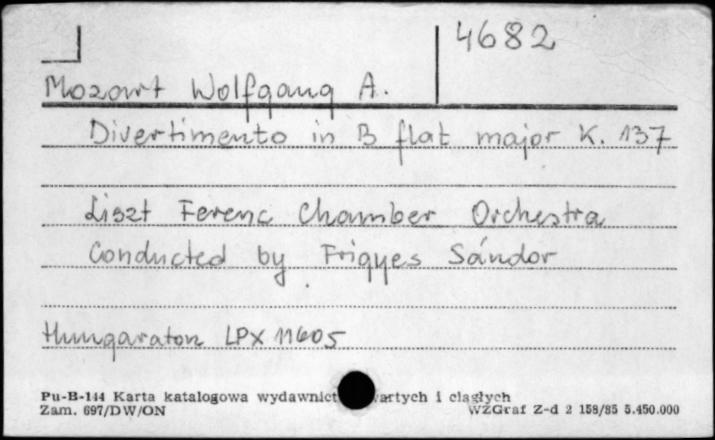 4682
Mozart Wolfgang A.
Divertimento in B flat major K. 137
Liszt Ferenc Chamber Orchestra
Conducted by Frigyes Sándor
Hungaraton LPX 11605
Pu-B-144 Karta katalogowa wydawnict wartych i ciągłych
Zam. 697/DW/ON WZGraf Z-d 2 158/85 5.450.000